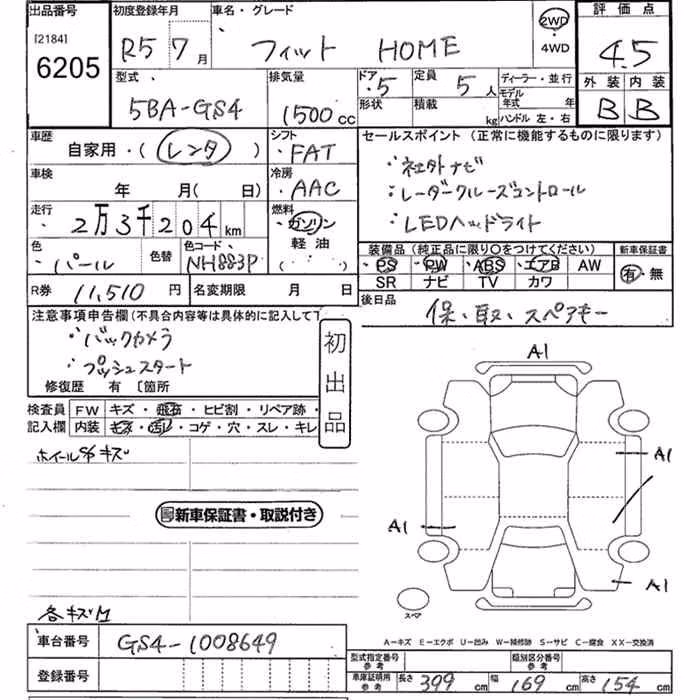 出品番号
[2184]
6205
初度登録年月
R5 7月
車名・グレード
フィット HOME
2WD
・
4WD
評価点
4.5
外装 内装
B B
型式
5BA-GS4
排気量
1500cc
ドア
・5
形状
定員
5人
積載
kg
ディーラー・並行
モデル年式 年
ハンドル 左・右
車歴
自家用・(レンタ)
シフト
・FAT
車検
年 月( 日)
冷房
・AAC
走行
2万3千204km
燃料
ガソリン
軽油
(・ )
色
・パール
色替
色コード
NH883P
R券 11,510円
名変期限 月 日
セールスポイント(正常に機能するものに限ります)
・社外ナビ
・レーダークルーズコントロール
・LEDヘッドライト
装備品(純正品に限り○をつけてください)
・PS・PW・ABS・エアB AW
SR ナビ TV カワ
新車保証書
有・無
後日品
保、取、スペアキー
注意事項申告欄(不具合内容等は具体的に記入して下
・バックカメラ
・プッシュスタート
修復歴 有 〔箇所
初出品
検査員 FW キズ・飛石・ヒビ割・リペア跡・
記入欄 内装 キズ・汚レ・コゲ・穴・スレ・キレ
ホイールキズ
新車保証書・取説付き
各キズ有
A1
A1
A1
A1
スペア
A-キズ E-エクボ U-凹み W-補修跡 S-サビ C-腐食 XX-交換済
車台番号 GS4-1008649
登録番号
型式指定番号
参考
類別区分番号
参考
車庫証明用
参考
長さ 399cm 幅 169cm 高さ 154cm